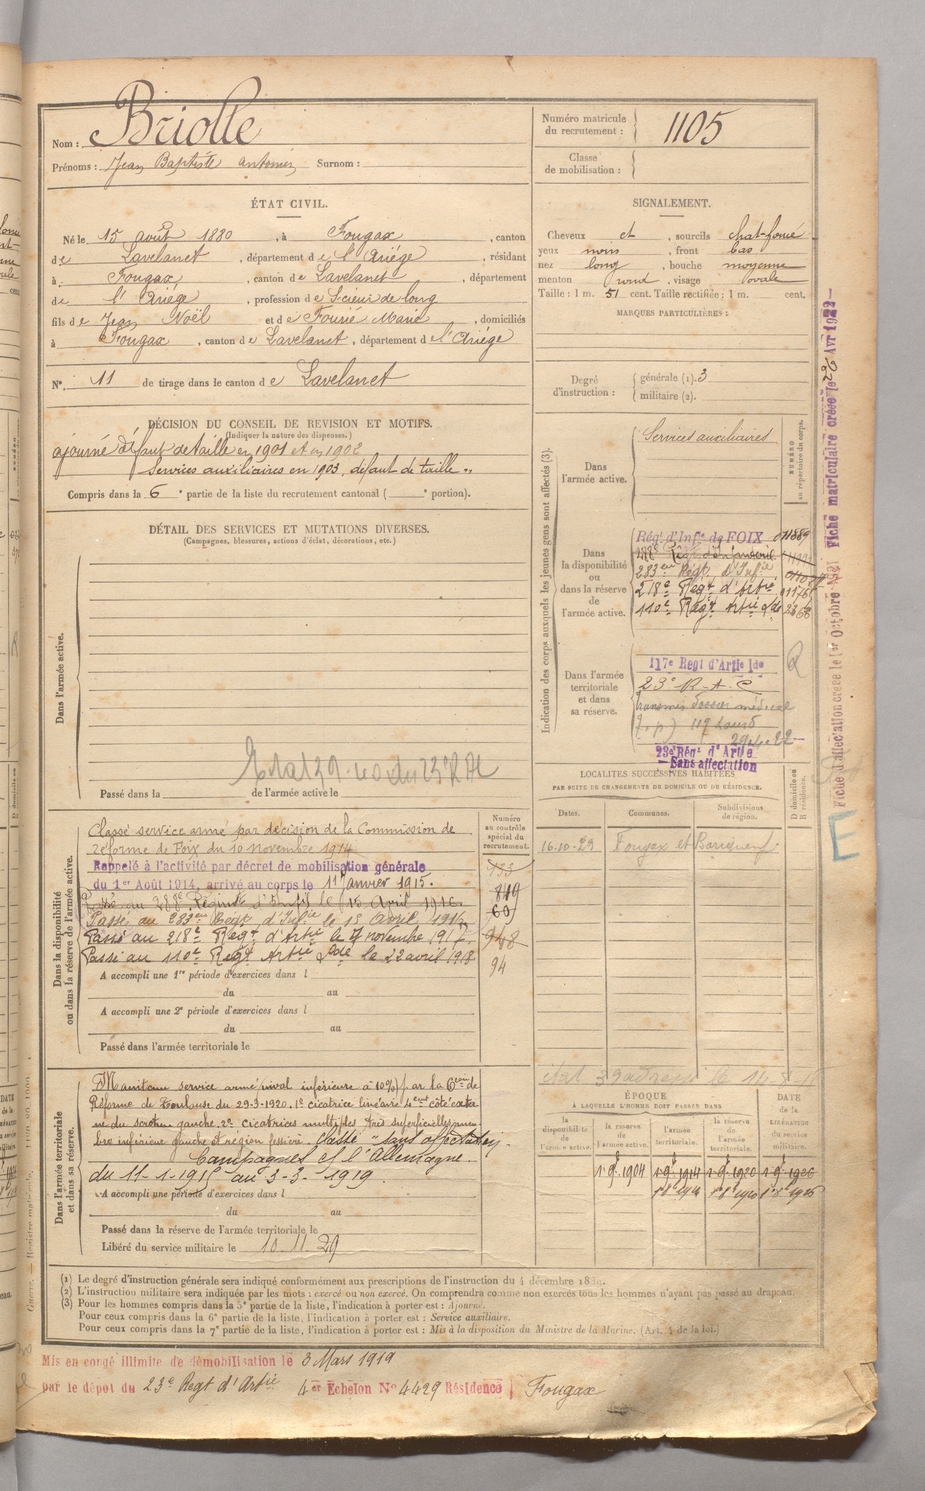 Nom : Briolle
Prénoms : Jean Baptiste Antonin Surnom :
Numéro matricule du recrutement : 1105
Classe de mobilisation :
ÉTAT CIVIL.
Né le 15 août 1880, à Fougax, canton
de Lavelanet, département de l'Ariège, résidant
à Fougax, canton de Lavelanet, département
de l'Ariège, profession de Scieur de long
fils de Jean Noël et de Fourié Marie, domiciliés
à Fougax, canton de Lavelanet, département de l'Ariège
N°. 11 de tirage dans le canton de Lavelanet
SIGNALEMENT.
Cheveux et, sourcils chat-foncé
yeux noirs, front bas
nez long, bouche moyenne
menton rond, visage ovale
Taille : 1 m. 51 cent. Taille rectifiée : 1 m. cent.
MARQUES PARTICULIÈRES :
Degré d'instruction : générale (1). 3
militaire (2).
DÉCISION DU CONSEIL DE REVISION ET MOTIFS.
(Indiquer la nature des dispenses.)
ajourné défaut de taille en 1901 et en 1902
Services auxiliaires en 1903, défaut de taille
Compris dans la 6e partie de la liste du recrutement cantonal ( e portion).
DÉTAIL DES SERVICES ET MUTATIONS DIVERSES.
(Campagnes, blessures, actions d'éclat, décorations, etc.)
Dans l'armée active.
Passé dans la de l'armée active le
Indication des corps auxquels les jeunes gens sont affectés (3).
NUMÉRO au répertoire du corps.
Dans l'armée active.
Services auxiliaires
Dans la disponibilité ou dans la réserve de l'armée active.
Régt d'Infie de FOIX
283em Régt d'Infie
218e Regt d'Artie
110e Régt Artie Lde 2368
Dans l'armée territoriale et dans sa réserve.
117e Regt d'Artie lde
23e R.A.C
Transmis dossier médical
23e Régt d'Artie
Sans affectation
LOCALITÉS SUCCESSIVES HABITÉES
PAR SUITE DE CHANGEMENTS DE DOMICILE OU DE RÉSIDENCE.
Dates. Communes. Subdivisions de région. D domicile ou R résidence.
16.10-29 Fougax et Barrineuf
Dans la disponibilité ou dans la réserve de l'armée active.
Numéro au contrôle spécial du recrutement.
Classé service armé par décision de la Commission de
réforme de Foix du 10 novembre 1914
Rappelé à l'activité par décret de mobilisation générale
du 1er Août 1914, arrivé au corps le 11 Janvier 1915.
Passé au 283em Regt d'Infie le 15 Avril 1916
Passé au 218e Regt d'Artie le 7 novembre 1917
Passé au 110e Regt Artie Lde le 22 avril 1918
94
A accompli une 1re période d'exercices dans l
du au
A accompli une 2e période d'exercices dans l
du au
Passé dans l'armée territoriale le
Dans l'armée territoriale et dans sa réserve.
Maintenu service armé, inval. inférieure à 10% par la Con de
Réforme de Toulouse du 29-3-1920. 1° cicatrice linéaire 4 cent côté exter
ne du scrotum gauche. 2° cicatrices multiples très superficielles mem
bre inférieur gauche et région fessière. Classé "sans affectation".
Campagnes ct l'Allemagne.
du 11-1-1915 au 3-3-1919.
A accompli une période d'exercices dans l
du au
Passé dans la réserve de l'armée territoriale le
Libéré du service militaire le 10.11.29
ÉPOQUE
À LAQUELLE L'HOMME DOIT PASSER DANS
la disponibilité de l'armée active. la réserve de l'armée active. l'armée territoriale. la réserve de l'armée territoriale. DATE de la LIBÉRATION du service militaire.
1er 9bre 1904 1er 9bre 1914 1er 9bre 1920
(1) Le degré d'instruction générale sera indiqué conformément aux prescriptions de l'instruction du 4 décembre 1889.
(2) L'instruction militaire sera indiquée par les mots : exercé ou non exercé. On comprendra comme non exercés tous les hommes n'ayant pas passé au drapeau.
(3) Pour les hommes compris dans la 5e partie de la liste, l'indication à porter est : Ajourné.
Pour ceux compris dans la 6e partie de la liste, l'indication à porter est : Service auxiliaire.
Pour ceux compris dans la 7e partie de la liste, l'indication à porter est : Mis à la disposition du Ministre de la Marine. (Art. 4 de la loi.)
Mis en congé illimité de démobilisation le 3 Mars 1919
par le dépôt du 23e Regt d'Artie 4er Echelon No 4429 Résidence Fougax
E